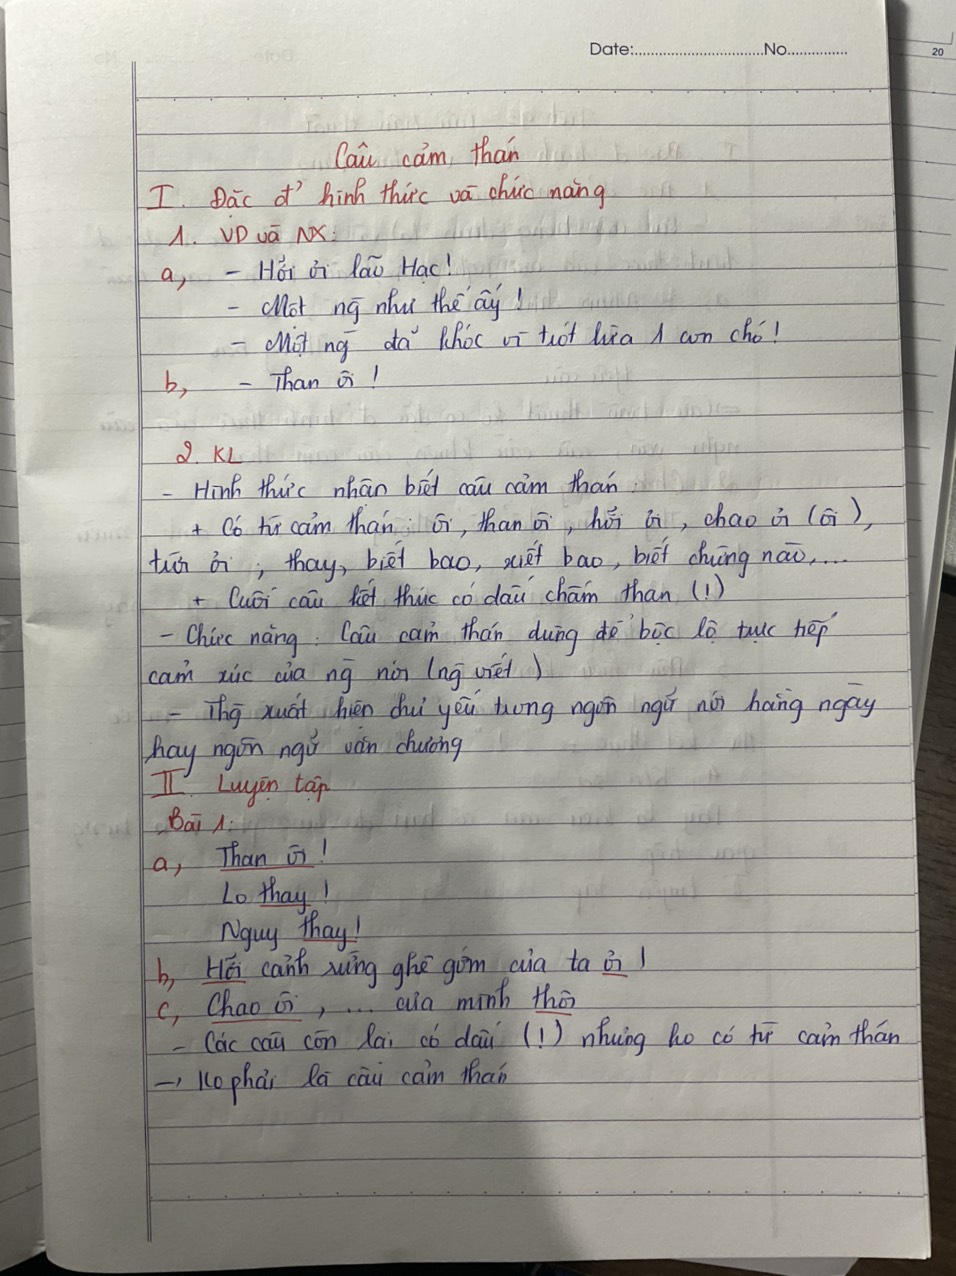 Date:..............................No..............
20
Câu cảm thán
I. Đặc đ' hình thức và chức năng
1. VD và NX:
a, - Hỡi ơi lão Hạc!
- Một ng̃ như thế ấy!
- Một ng̃ đã khóc vì trót lừa 1 con chó!
b, - Than ôi!
2. KL
- Hình thức nhận biết câu cảm thán:
+ Có từ cảm thán: ôi, than ôi, hỡi ơi, chao ơi (ôi),
trời ơi; thay, biết bao, xiết bao, biết chừng nào,...
+ Cuối câu kết thúc có dấu chấm than (!)
- Chức năng: Câu cảm thán dùng để bộc lộ trực tiếp
cảm xúc của ng̃ nói (ng̃ viết)
- Thg̃ xuất hiện chủ yếu trong ngôn ngữ nói hàng ngày
hay ngôn ngữ văn chương
II. Luyện tập
Bài 1:
a, Than ôi!
Lo thay!
Nguy thay!
b, Hỡi cảnh rừng ghê gớm của ta ơi!
c, Chao ôi, ... của mình thôi
- Các câu còn lại có dấu (!) nhưng ko có từ cảm thán
→ Ko phải là câu cảm thán